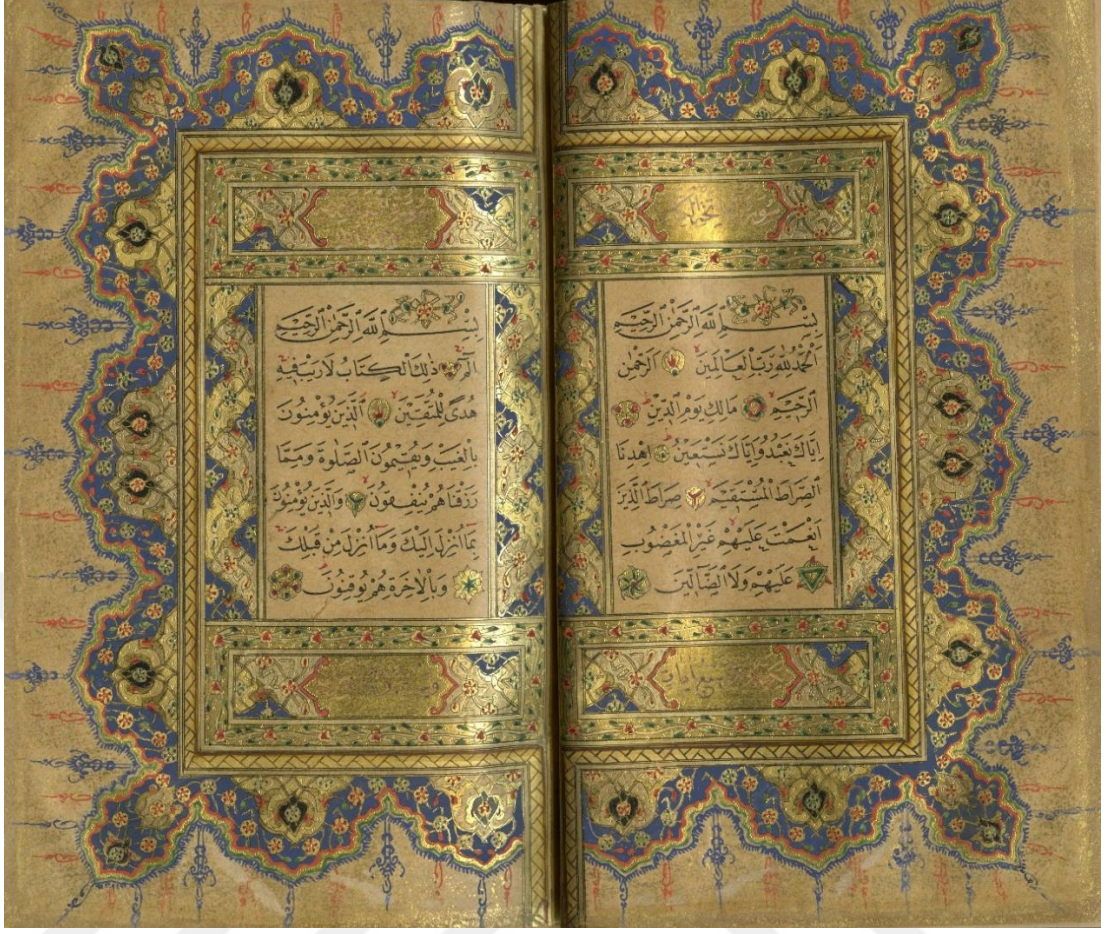 بِسْمِ ٱللَّهِ ٱلرَّحْمٰنِ ٱلرَّحِيمِ
اَلْحَمْدُ لِلَّهِ رَبِّ ٱلْعَالَمِينَ اَلرَّحْمٰنِ
ٱلرَّحِيمِ مَالِكِ يَوْمِ ٱلدِّينِ
اِيَّاكَ نَعْبُدُ وَاِيَّاكَ نَسْتَعِينُ اِهْدِنَا
ٱلصِّرَاطَ ٱلْمُسْتَقِيمَ صِرَاطَ ٱلَّذِينَ
اَنْعَمْتَ عَلَيْهِمْ غَيْرِ ٱلْمَغْضُوبِ
عَلَيْهِمْ وَلَا ٱلضَّٓالِّينَ
سبع ايات
بِسْمِ ٱللَّهِ ٱلرَّحْمٰنِ ٱلرَّحِيمِ
الٓمٓ ذٰلِكَ ٱلْكِتَابُ لَا رَيْبَ فِيهِ
هُدًى لِلْمُتَّقِينَ اَلَّذِينَ يُؤْمِنُونَ
بِٱلْغَيْبِ وَيُقِيمُونَ ٱلصَّلٰوةَ وَمِمَّا
رَزَقْنَاهُمْ يُنْفِقُونَ وَٱلَّذِينَ يُؤْمِنُونَ
بِمَٓا اُنْزِلَ اِلَيْكَ وَمَٓا اُنْزِلَ مِنْ قَبْلِكَ
وَبِٱلْاٰخِرَةِ هُمْ يُوقِنُونَ